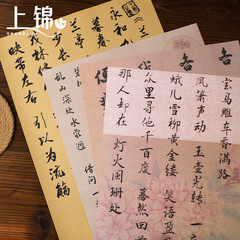 上锦
宝马雕车香满路
凤箫声动 玉壶光转 一
蛾儿雪柳黄金缕 笑语盈
众里寻他千百度 蓦然回
那人却在 灯火阑珊处
乱山深处水萦回
借问
永和
暮春
兰亭
茂林修
映带左右 引以为流觞